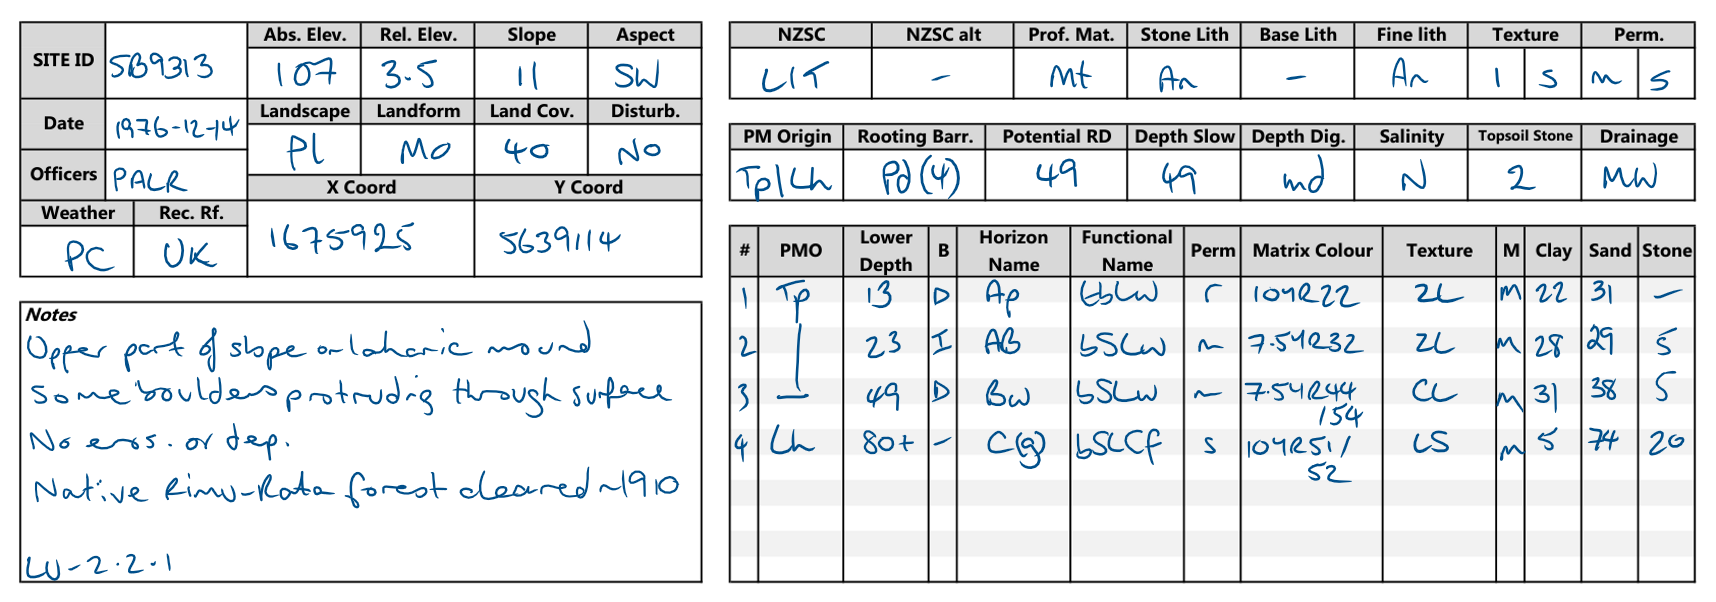 SITE ID SB9313
Date 1976-12-14
Officers PALR
Weather Rec. Rf.
PC UK
Abs. Elev. Rel. Elev. Slope Aspect
107 3.5 11 SW
Landscape Landform Land Cov. Disturb.
Pl Mo 40 No
X Coord Y Coord
1675925 5639114
Notes
Upper part of slope on laharic mound
Some boulders protrudig through surface
No eros. or dep.
Native Rimu-Rata forest cleared ~1910
LU-2.2.1
NZSC NZSC alt Prof. Mat. Stone Lith Base Lith Fine lith Texture Perm.
LIT - Mt An - An l s m s
PM Origin Rooting Barr. Potential RD Depth Slow Depth Dig. Salinity Topsoil Stone Drainage
Tp/Lh Pd(4) 49 49 md N 2 MW
# PMO Lower Depth B Horizon Name Functional Name Perm Matrix Colour Texture M Clay Sand Stone
1 Tp 13 D Ap tbLw r 10YR22 ZL M 22 31 -
2 23 I AB bSLw m 7.5YR32 ZL M 28 29 5
3 49 D Bw bSLw m 7.5YR44 CL M 31 38 5
/54
4 Lh 80+ - C(g) bSLCf s 10YR51/ LS M 5 74 20
52